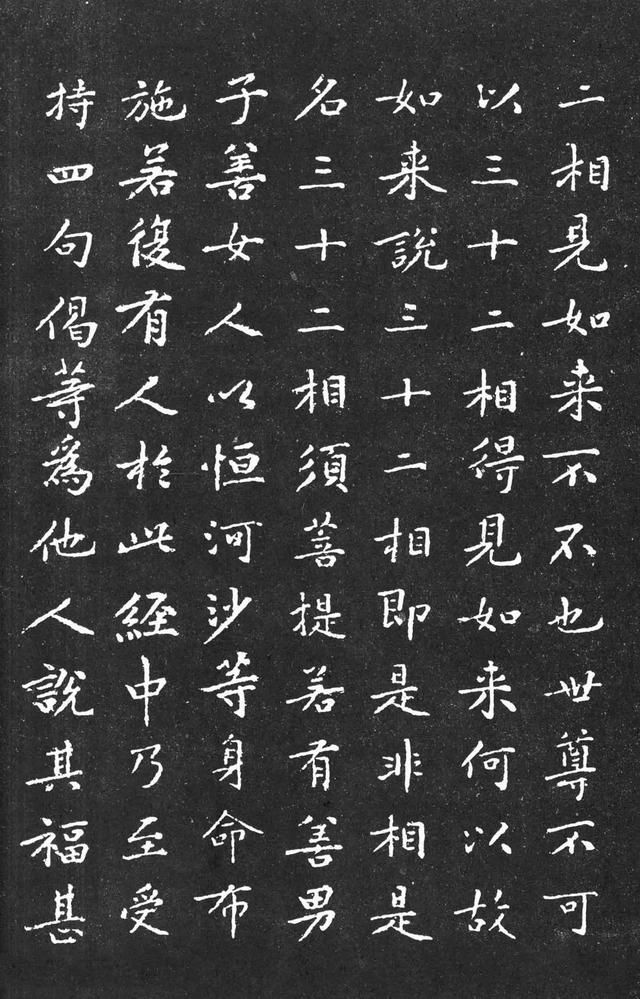 二相見如来不不也世尊不可
以三十二相得見如来何以故
如来說三十二相即是非相是
名三十二相須菩提若有善男
子善女人以恒河沙等身命布
施若復有人於此經中乃至受
持四句偈等為他人說其福甚